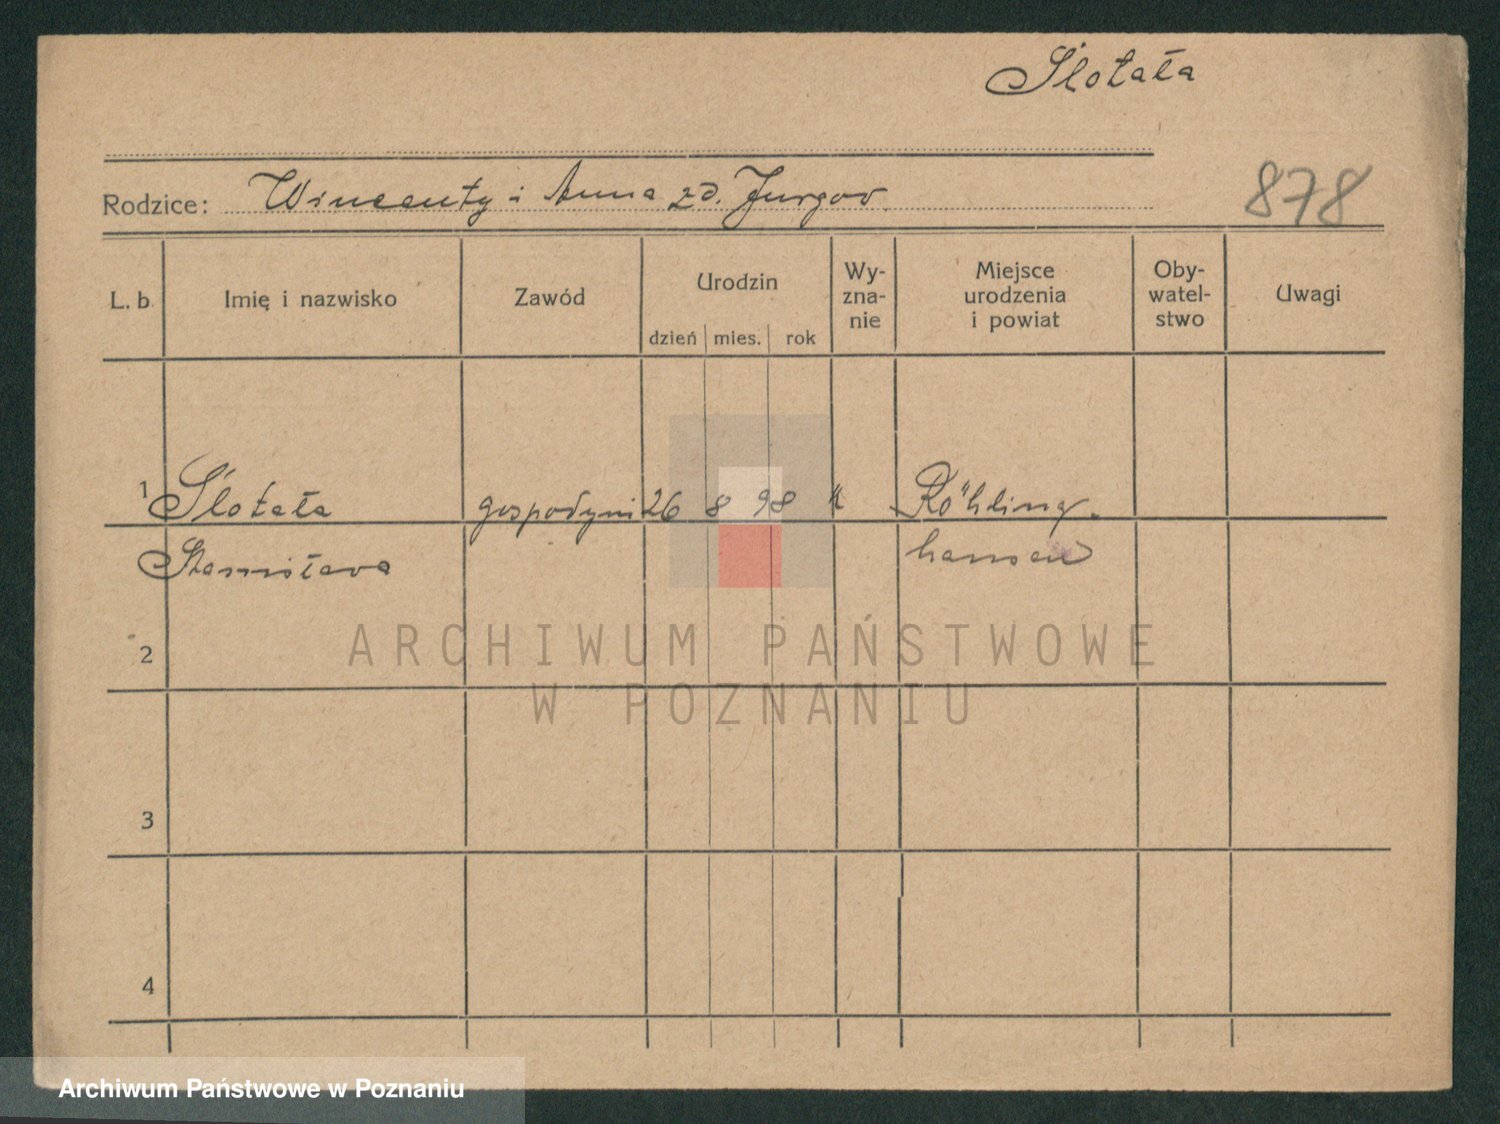 Ślotała
Rodzice: Wincenty i Anna zd. Jurgov
878
L. b. Imię i nazwisko Zawód Urodzin dzień mies. rok Wy- zna- nie Miejsce urodzenia i powiat Oby- watel- stwo Uwagi
1 Ślotała gospodyni 26 8 98 k Röhling-
Stanisława hausen
2
3
4
ARCHIWUM PAŃSTWOWE
W POZNANIU
Archiwum Państwowe w Poznaniu